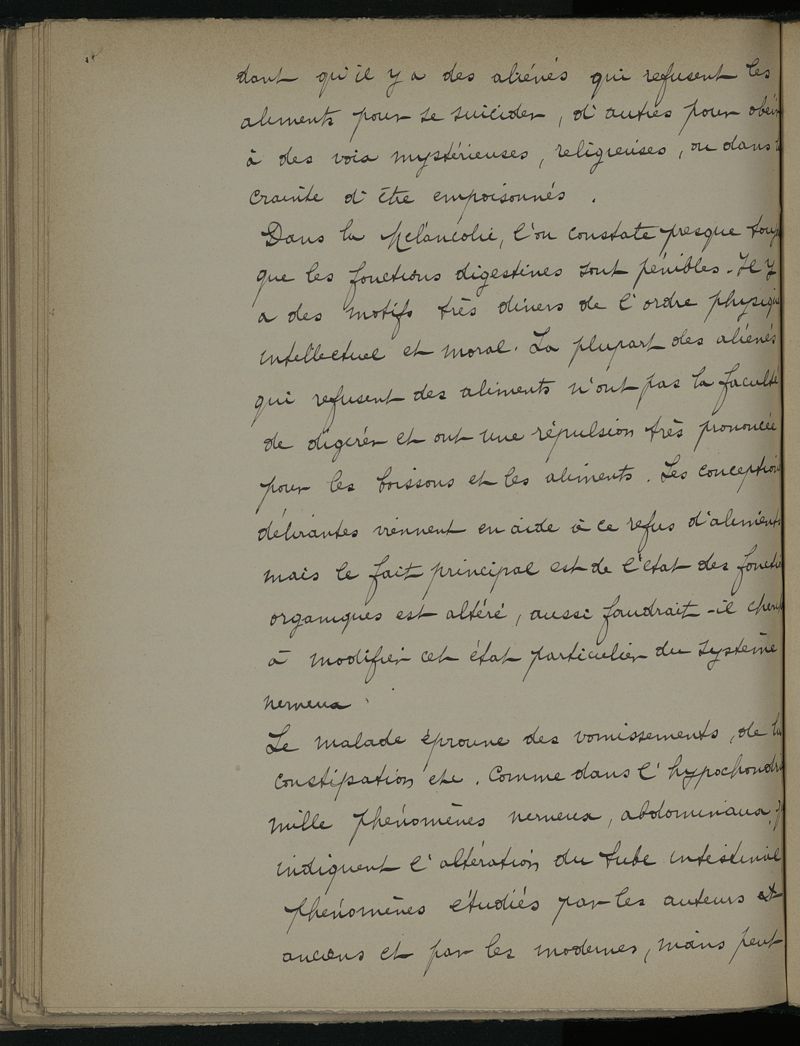 dont qu'il y a des aliénés qui refusent les
aliments pour se suicider, d'autres pour obéir
à des voix mystérieuses, religieuses, ou dans
crainte d'être empoisonnés.
Dans la Mélancolie, l'on constate presque touj
que les fonctions digestives sont pénibles. Il y
a des motifs très divers de l'ordre physiqu
intellectuel et moral. La plupart des aliénés
qui refusent des aliments n'ont pas la faculté
de digérer et ont une répulsion très prononcée
pour les boissons et les aliments. Les conception
délirantes viennent en aide à ce refus d'aliments
mais le fait principal est de l'état des foncti
organiques est altéré, aussi faudrait-il cherch
à modifier cet état particulier du système
nerveux.
Le malade éprouve des vomissements, de la
constipation etc. Comme dans l'hypochondri
mille phénomènes nerveux, abdominaux, q
indiquent l'altération du tube intestinal
phénomènes étudiés par les auteurs
anciens et par les modernes, mains peut